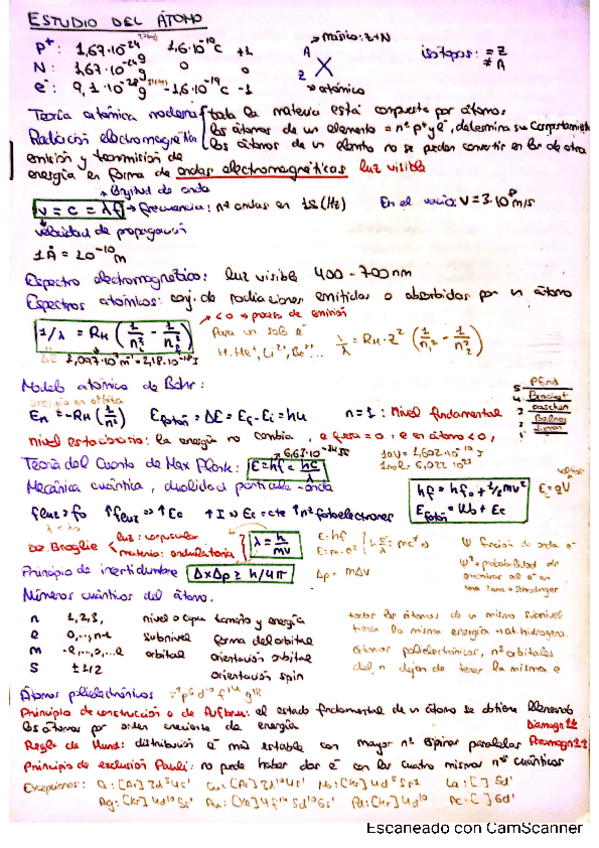 ESTUDIO DEL ÁTOMO
p+: 1,67·10^-24 g 1,6·10^-19 C +1
N: 1,67·10^-24 g 0 0
e-: 9,1·10^-28 g -1,6·10^-19 C -1
A → másico: Z+N
Z X → atómico
isótopos: = Z ≠ A
Teoría atómica moderna { toda la materia está compuesta por átomos
los átomos de un elemento = nº p+ y e-, determina su comportamiento
los átomos de un elemento no se pueden convertir en los de otro
Radiación electromagnética
emisión y transmisión de
energía en forma de ondas electromagnéticas luz visible
longitud de onda
v = c = λf → frecuencia: nº ondas en 1s (Hz) En el vacío: v = 3·10^8 m/s
velocidad de propagación
1Å = 10^-10 m
Espectro electromagnético: luz visible 400 - 700 nm
Espectros atómicos: conj. de radiaciones emitidas o absorbidas por un átomo
1/λ = RH (1/ni² - 1/nf²) <0 → proceso de emisión
Para un solo e-
1/λ = RH·Z² (1/n1² - 1/n2²)
1,097·10^7 m^-1 = 2,18·10^-18 J
Modelo atómico de Bohr:
energía en órbita
En = -RH (1/n²) Efotón = ΔE = Ef - Ei = hν n = 1: Nivel fundamental
5 Pfund
4 Bracket
3 Paschen
2 Balmer
1 Lyman
nivel estacionario: la energía no cambia, e fuera = 0, e en átomo < 0,
6,63·10^-34 Js
1eV = 1,602·10^-19 J
1mol = 6,022·10^23
Teoría del Cuanto de Max Plank: E = hf = hc/λ
Mecánica cuántica, dualidad partícula-onda
hf = hf0 + 1/2 mv²
Efotón = W0 + Ec
E = qV
f luz > f0 ↑f luz ⇒ ↑Ec ↑I ⇒ Ec = cte ↑nº fotoelectrones
De Broglie { luz: corpuscular
materia: ondulatoria } λ = h/mv
E = hf
E = m·c²
ψ función de onda e-
ψ² → probabilidad de
encontrar al e- en
una zona → Shrodinger
Principio de incertidumbre ΔxΔp ≥ h/4π Δp = mΔv
Números cuánticos del átomo.
n 1,2,3, nivel o capa tamaño y energía
l 0,...,n-1 subnivel forma del orbital
m -l,...,0,...l orbital orientación orbital
S ±1/2 orientación spin
todos los átomos de un mismo subnivel
tienen la misma energía → at hidrógeno.
átomos polielectrónicos, nº orbitales
del n dejan de tener la misma e
Átomos polielectrónicos: s²p⁶d¹⁰f¹⁴g¹⁸
Principio de construcción o de Aufbau: el estado fundamental de un átomo se obtiene llenando
los átomos por orden creciente de energía Diamagn ↑↓
Regla de Hund: distribución e- más estable con mayor nº espines paralelos Paramagn ↑↑
Principio de exclusión Pauli: no puede haber dos e- con los cuatro mismos nºs cuánticos
Excepciones: Cr: [Ar] 3d⁵4s¹ Cu: [Ar] 3d¹⁰4s¹ La: [ ] 5d¹
Ag: [Kr] 4d¹⁰5s¹ Au: [Xe] 4f¹⁴5d¹⁰6s¹ Pd: [Kr] 4d¹⁰ Ac: [ ] 6d¹
Escaneado con CamScanner